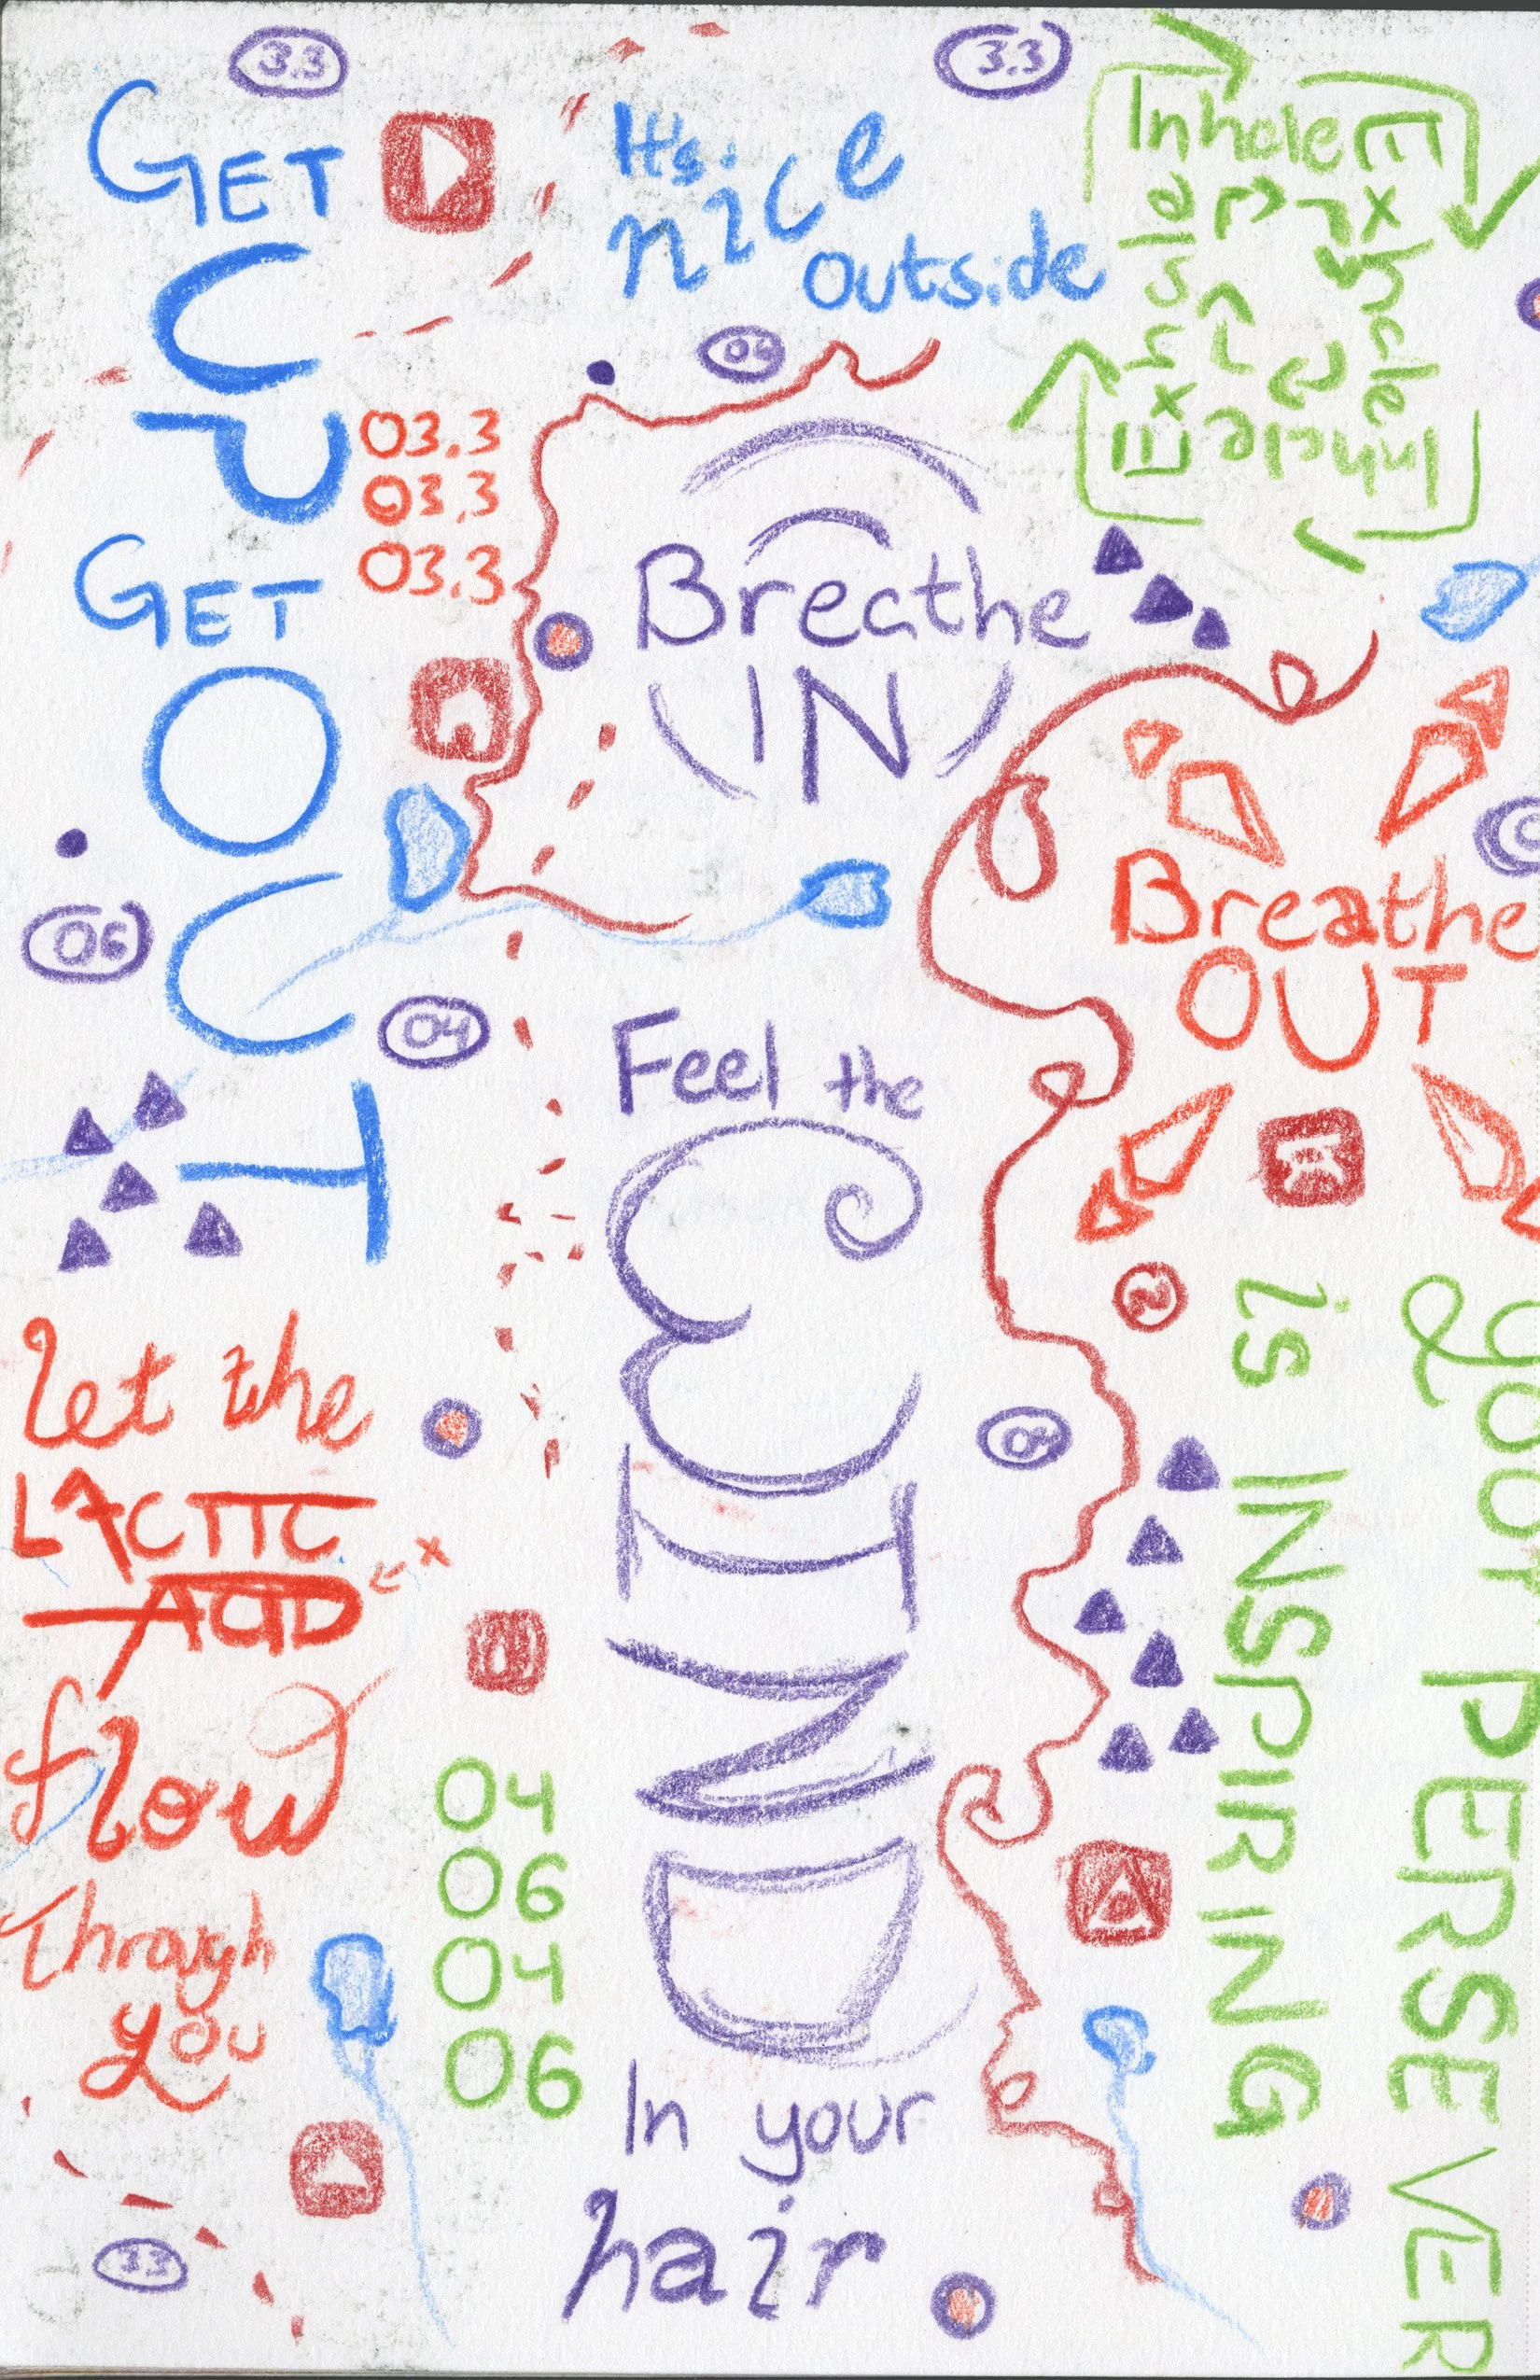 3.3
3.3
GET
UP
03.3
03.3
03.3
GET
OUT
It's
nice
outside
Inhale
Exhale
Inhale
Exhale
Breathe
IN
Breathe
OUT
06
04
Feel the
WIND
In your
hair
let the
LACTIC
ACID
flow
Through
you
04
06
04
06
your PERSEVER
is INSPIRING
3.3